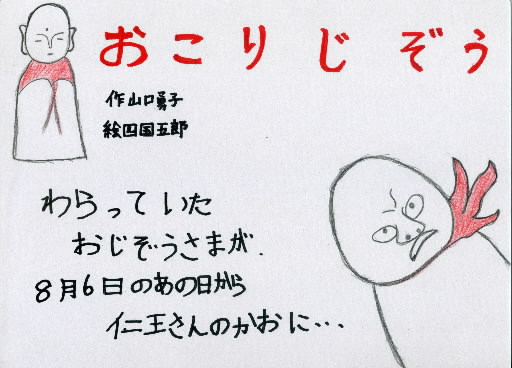 おこりじぞう
作山口勇子
絵四国五郎
わらっていた
おじぞうさまが.
8月6日のあの日から
仁王さんのかおに…